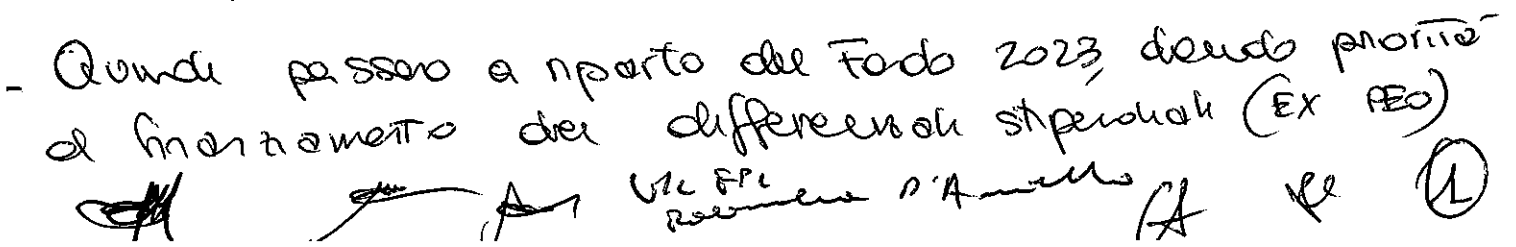 - Quindi passano a riparto del Fondo 2023, dando priorità
al finanziamento dei differenziali stipendiali (EX PEO)
UIL FPL
D'Aniello
1